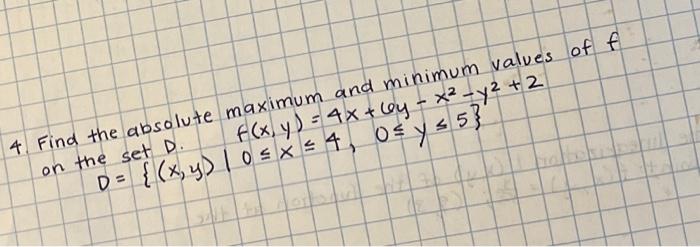 4. Find the absolute maximum and minimum values of f
on the set D. f(x,y) = 4x + 6y - x² - y² + 2
D = {(x,y) | 0 ≤ x ≤ 4, 0 ≤ y ≤ 5}